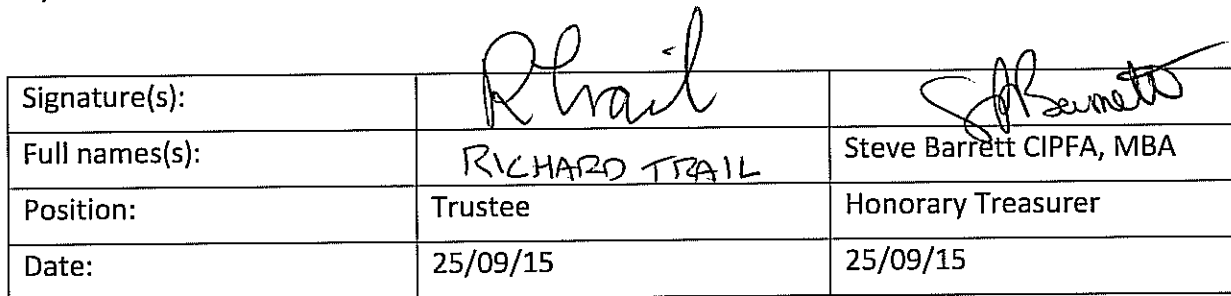 Signature(s): RTrail SABarrett
Full names(s): RICHARD TRAIL Steve Barrett CIPFA, MBA
Position: Trustee Honorary Treasurer
Date: 25/09/15 25/09/15